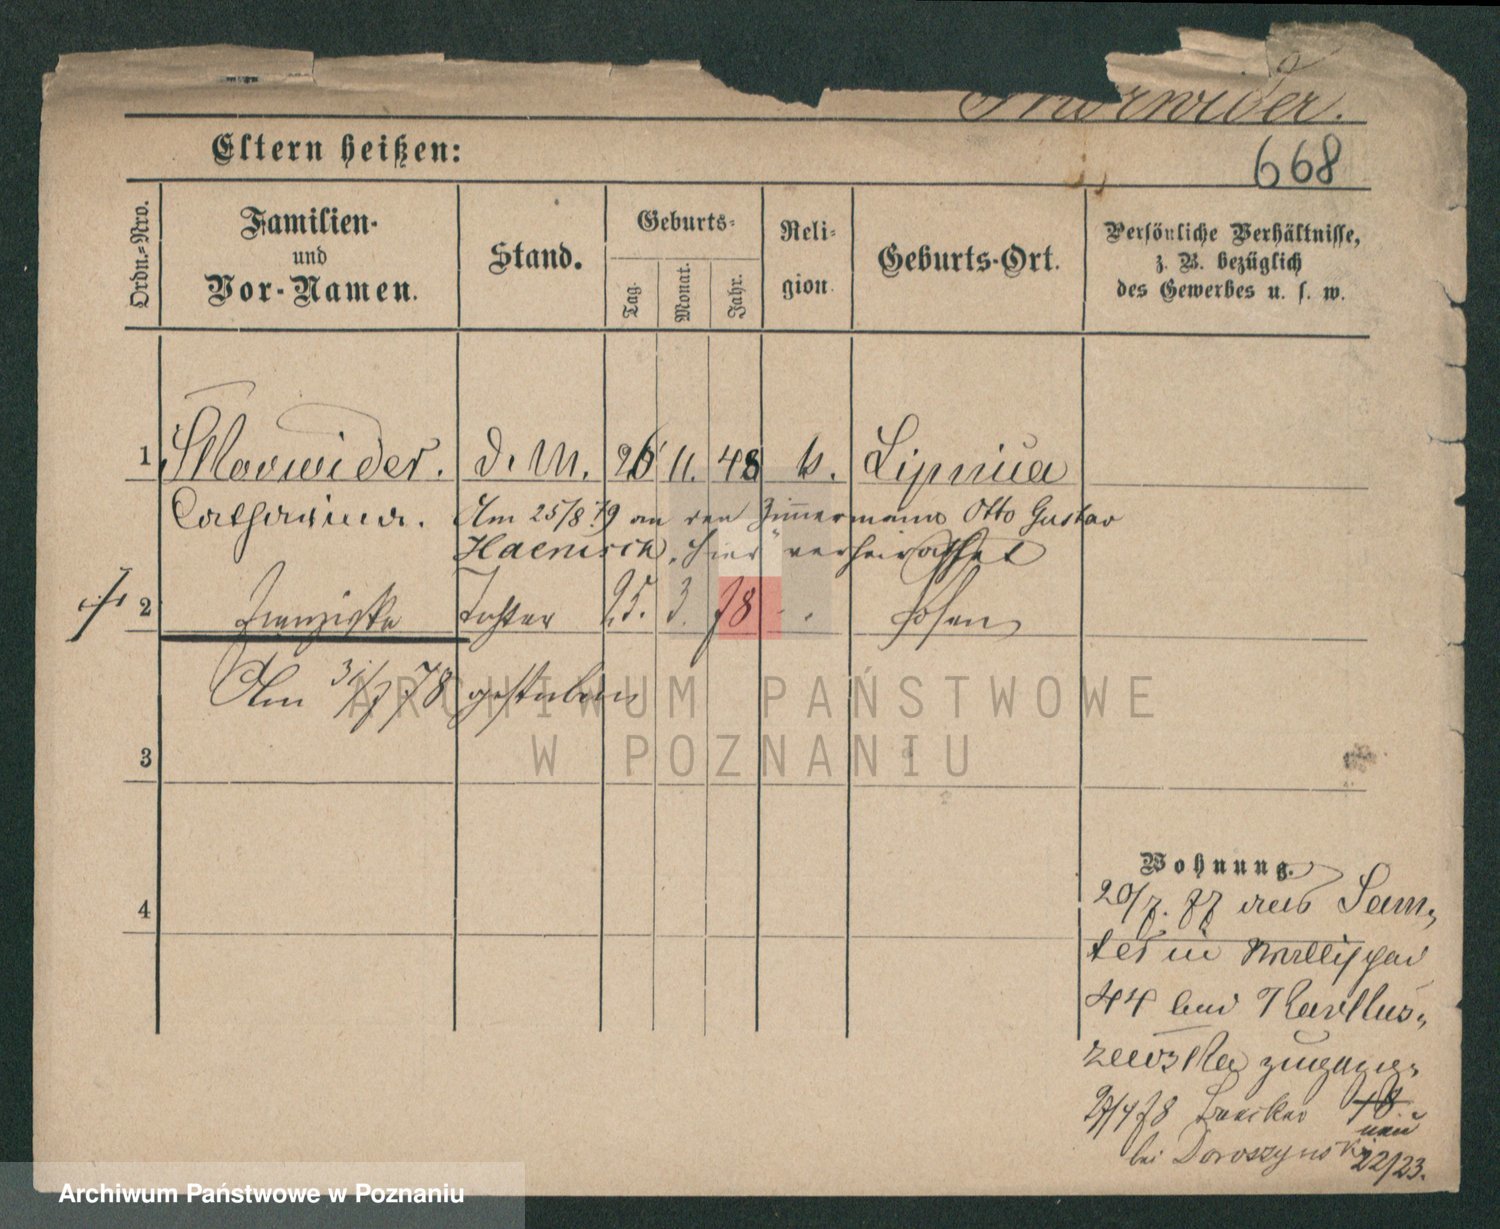 Skorwider.
668
Eltern heißen:
Ordn.=Nro.
Familien-
und
Vor-Namen.
Stand.
Geburts-
Tag.
Monat.
Jahr.
Reli-
gion.
Geburts-Ort.
Persönliche Verhältnisse,
z. B. bezüglich
des Gewerbes u. s. w.
1 Skorwider. d. M. 26 11. 48 k. Lipnica
Catharina. Am 25/8 79 an den Zimmermann Otto Gustav
Haenisch, hier verheirathet
2 Franziska Tochter 25. 3. 78 Posen
Am 31/7 78 gestorben
3
4
Wohnung.
20/7. 77 aus Sam-
ter in Wallischei
44 bei Kartlus-
zewska zugezog.
27/4 78 18
neu
bei Doroszynski 22/23.
ARCHIWUM PAŃSTWOWE
W POZNANIU
Archiwum Państwowe w Poznaniu